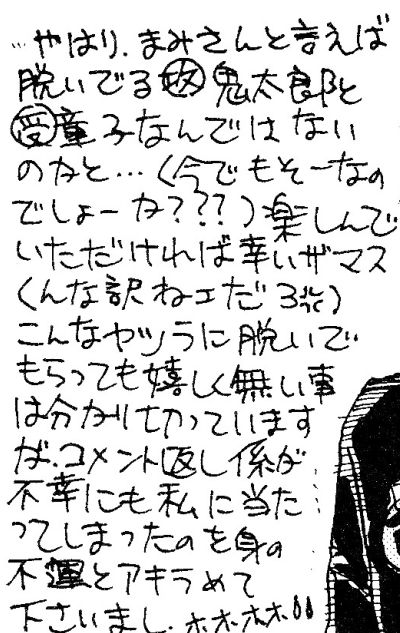 …やはり、まみさんと言えば
脱いでる攻鬼太郎と
受童子なんではない
のかと…(今でもそーなの
でしょーか???)楽しんで
いただければ幸いザマス
くんな訳ねェだろ)
こんなヤツラに脱いで
もらっても嬉しく無い事
は分かり切っています
が、コメント返し係が
不幸にも私に当た
ってしまったのを身の
不運とアキラめて
下さいまし、ホホホホ!!